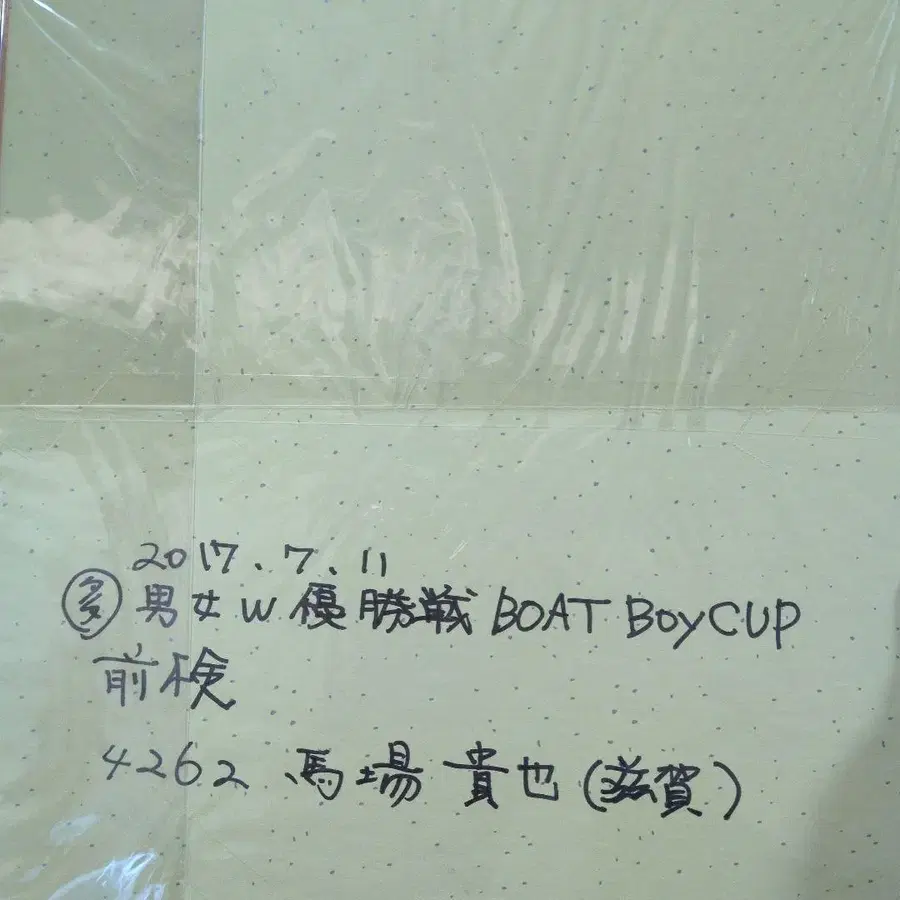 2017.7.11
㊟男女W優勝戦 BOAT BoyCUP
前検
4262 馬場 貴也(滋賀)